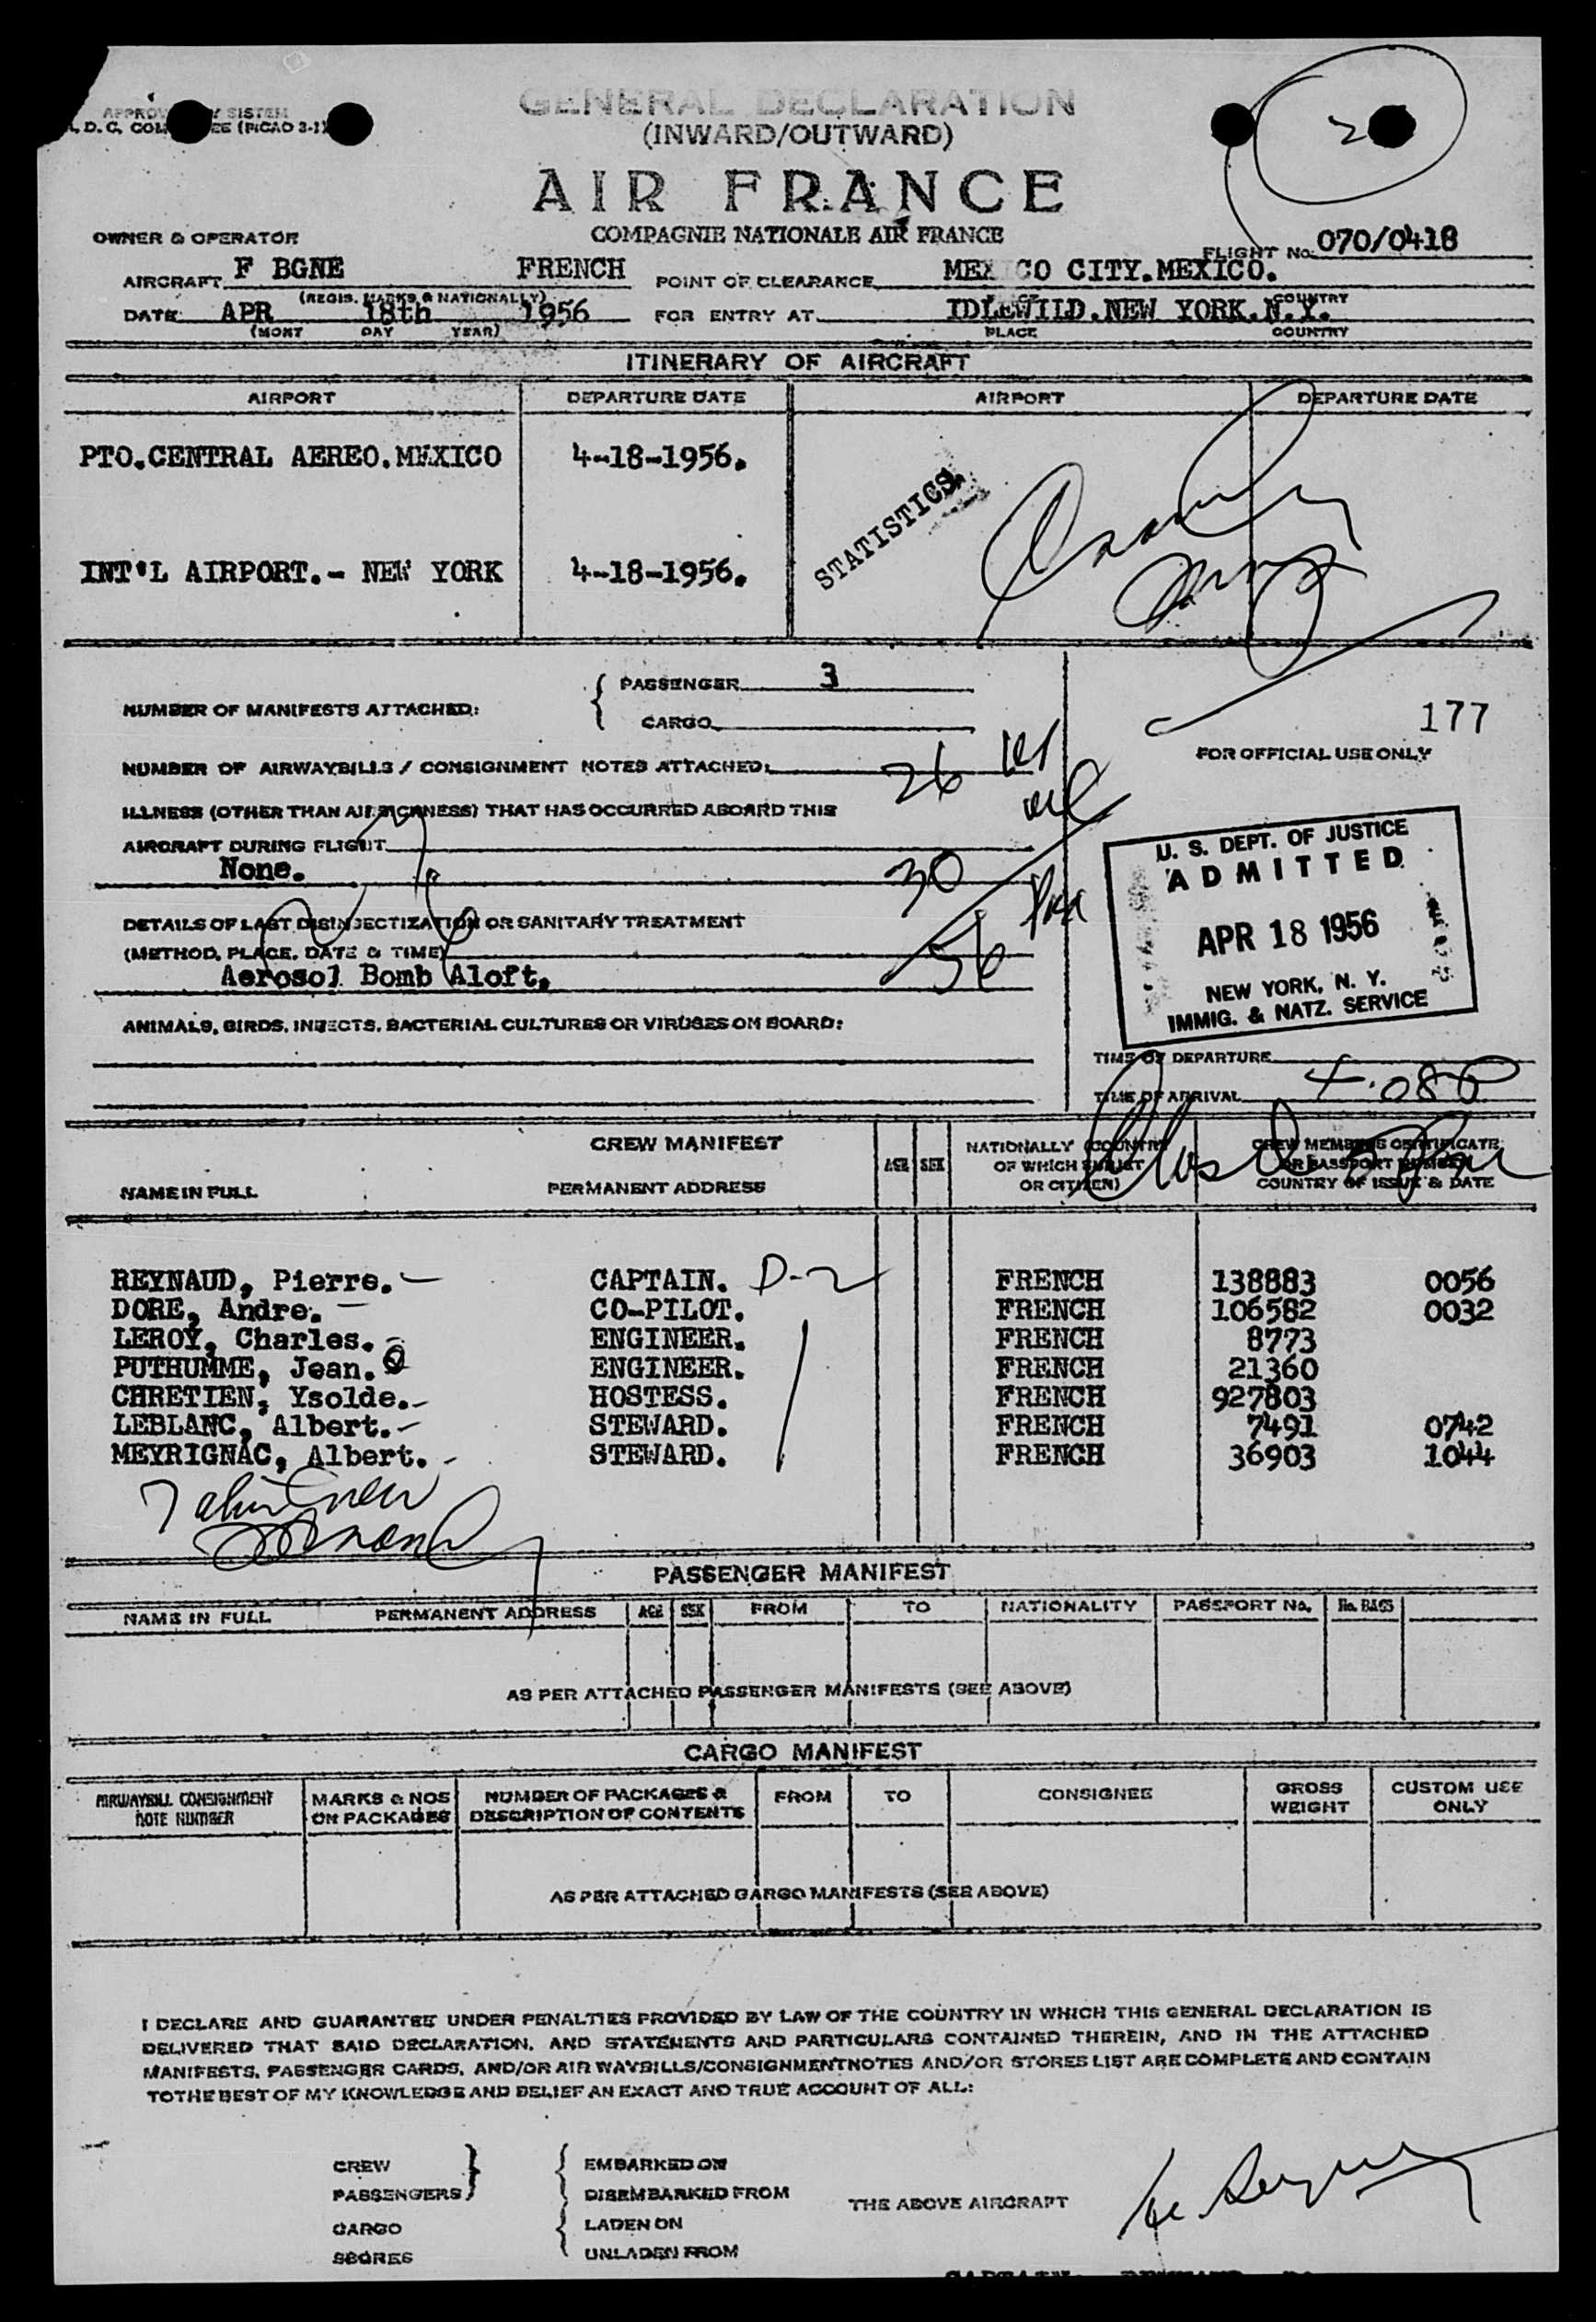 GENERAL DECLARATION
(INWARD/OUTWARD)
AIR FRANCE
COMPAGNIE NATIONALE AIR FRANCE
OWNER & OPERATOR
FLIGHT No. 070/0418
AIRCRAFT F BGNE FRENCH POINT OF CLEARANCE MEXICO CITY.MEXICO.
(REGIS. MARKS & NATIONALLY) COUNTRY
DATE APR 18th 1956 FOR ENTRY AT IDLEWILD.NEW YORK.N.Y.
(MONT DAY YEAR) PLACE COUNTRY
ITINERARY OF AIRCRAFT
AIRPORT DEPARTURE DATE AIRPORT DEPARTURE DATE
PTO.CENTRAL AEREO.MEXICO 4-18-1956.
STATISTICS
INT'L AIRPORT.- NEW YORK 4-18-1956.
PASSENGER 3
NUMBER OF MANIFESTS ATTACHED:
CARGO
177
FOR OFFICIAL USE ONLY
NUMBER OF AIRWAYBILLS / CONSIGNMENT NOTES ATTACHED: 26
ILLNESS (OTHER THAN AIRSICKNESS) THAT HAS OCCURRED ABOARD THIS
AIRCRAFT DURING FLIGHT
None.
30
DETAILS OF LAST DISINSECTIZATION OR SANITARY TREATMENT
(METHOD, PLACE, DATE & TIME) 56
Aerosol Bomb Aloft.
ANIMALS, BIRDS, INSECTS, BACTERIAL CULTURES OR VIRUSES ON BOARD:
U. S. DEPT. OF JUSTICE
ADMITTED
APR 18 1956
NEW YORK, N. Y.
IMMIG. & NATZ. SERVICE
TIME OF DEPARTURE
TIME OF ARRIVAL 4:08P
CREW MANIFEST
NAME IN FULL PERMANENT ADDRESS AGE SEX NATIONALLY (COUNTRY OF WHICH SUBJECT OR CITIZEN) CREW MEMBERS CERTIFICATE OR PASSPORT NUMBER COUNTRY OF ISSUE & DATE
REYNAUD, Pierre. CAPTAIN. D-2 FRENCH 138883 0056
DORE, Andre. CO-PILOT. FRENCH 106582 0032
LEROY, Charles. ENGINEER. FRENCH 8773
PUTHUMME, Jean. ENGINEER. FRENCH 21360
CHRETIEN, Ysolde. HOSTESS. FRENCH 927803
LEBLANC, Albert. STEWARD. FRENCH 7491 0742
MEYRIGNAC, Albert. STEWARD. FRENCH 36903 1044
PASSENGER MANIFEST
NAME IN FULL PERMANENT ADDRESS AGE SEX FROM TO NATIONALITY PASSPORT No. No. BAGS
AS PER ATTACHED PASSENGER MANIFESTS (SEE ABOVE)
CARGO MANIFEST
AIRWAYBILL CONSIGNMENT NOTE NUMBER MARKS & NOS ON PACKAGES NUMBER OF PACKAGES & DESCRIPTION OF CONTENTS FROM TO CONSIGNEE GROSS WEIGHT CUSTOM USE ONLY
AS PER ATTACHED CARGO MANIFESTS (SEE ABOVE)
I DECLARE AND GUARANTEE UNDER PENALTIES PROVIDED BY LAW OF THE COUNTRY IN WHICH THIS GENERAL DECLARATION IS
DELIVERED THAT SAID DECLARATION, AND STATEMENTS AND PARTICULARS CONTAINED THEREIN, AND IN THE ATTACHED
MANIFESTS, PASSENGER CARDS, AND/OR AIR WAYBILLS/CONSIGNMENTNOTES AND/OR STORES LIST ARE COMPLETE AND CONTAIN
TOTHE BEST OF MY KNOWLEDGE AND BELIEF AN EXACT AND TRUE ACCOUNT OF ALL:
CREW EMBARKED ON
PASSENGERS DISEMBARKED FROM
THE ABOVE AIRCRAFT
CARGO LADEN ON
SEORES UNLADEN FROM